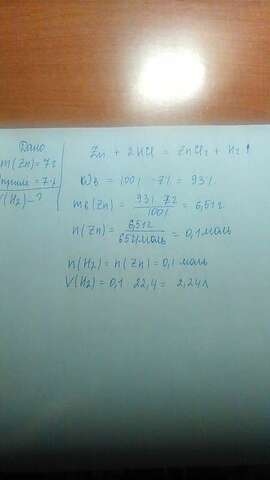 Дано
m(Zn)=7г
=7%
V(H₂)=?
Zn + 2HCl = ZnCl₂ + H₂↑
ωв = 100% - 7% = 93%
mв(Zn) = 93% · 7г / 100% = 6,51г
n(Zn) = 6,51г / 65г/моль = 0,1 моль
n(H₂) = n(Zn) = 0,1 моль
V(H₂) = 0,1 · 22,4 = 2,24л